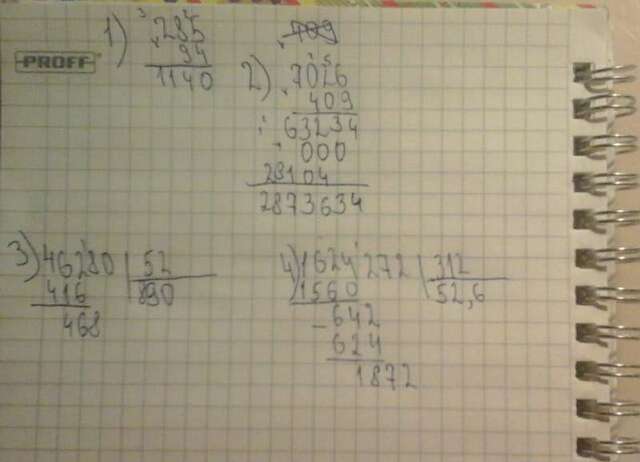 PROFF
1) 285
× 94
1140
709
2) 7026
× 409
63234
000
28104
2873634
3) 46280 | 52
416 | 890
468
4) 1624272 | 312
1560 | 52,6
- 642
624
1872